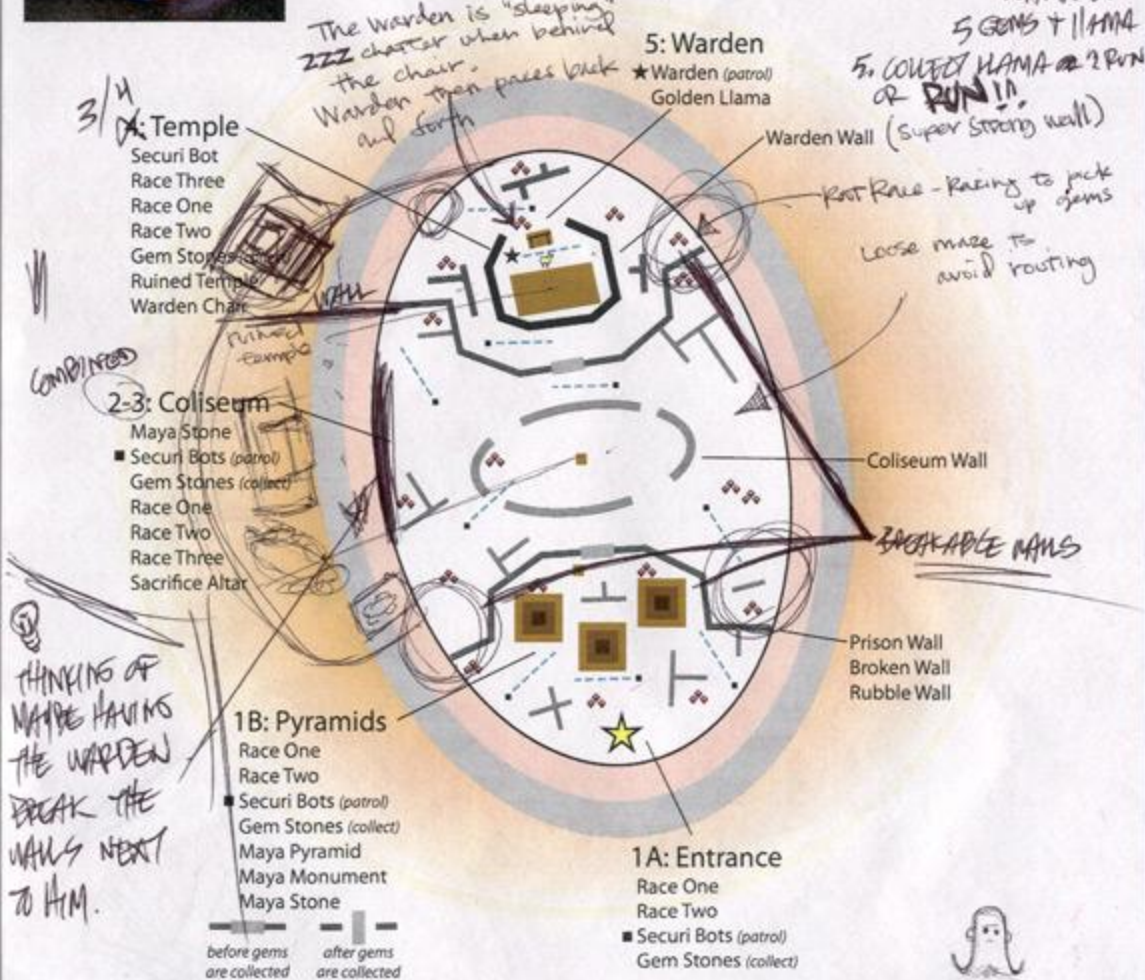 The Warden is "sleeping"
ZZZ chatter when behind
the chair.
Warden then paces back
and forth
5 GEMS + LLAMA
5. COLLECT LLAMA OR 2 RUN
OR RUN!!
(Super strong wall)
5: Warden
★Warden (patrol)
Golden Llama
Warden Wall
3/4
4: Temple
Securi Bot
Race Three
Race One
Race Two
Gem Stones
Ruined Temple
Warden Chair
Rat Race - Racing to pick
up gems
Loose maze to
avoid routing
WALL
ruined
temple
COMBINED
2-3: Coliseum
Maya Stone
■ Securi Bots (patrol)
Gem Stones (collect)
Race One
Race Two
Race Three
Sacrifice Altar
Coliseum Wall
BREAKABLE WALLS
Prison Wall
Broken Wall
Rubble Wall
THINKING OF
MAYBE HAVING
THE WARDEN
BREAK THE
WALLS NEXT
TO HIM.
1B: Pyramids
Race One
Race Two
■ Securi Bots (patrol)
Gem Stones (collect)
Maya Pyramid
Maya Monument
Maya Stone
before gems
are collected
after gems
are collected
1A: Entrance
Race One
Race Two
■ Securi Bots (patrol)
Gem Stones (collect)